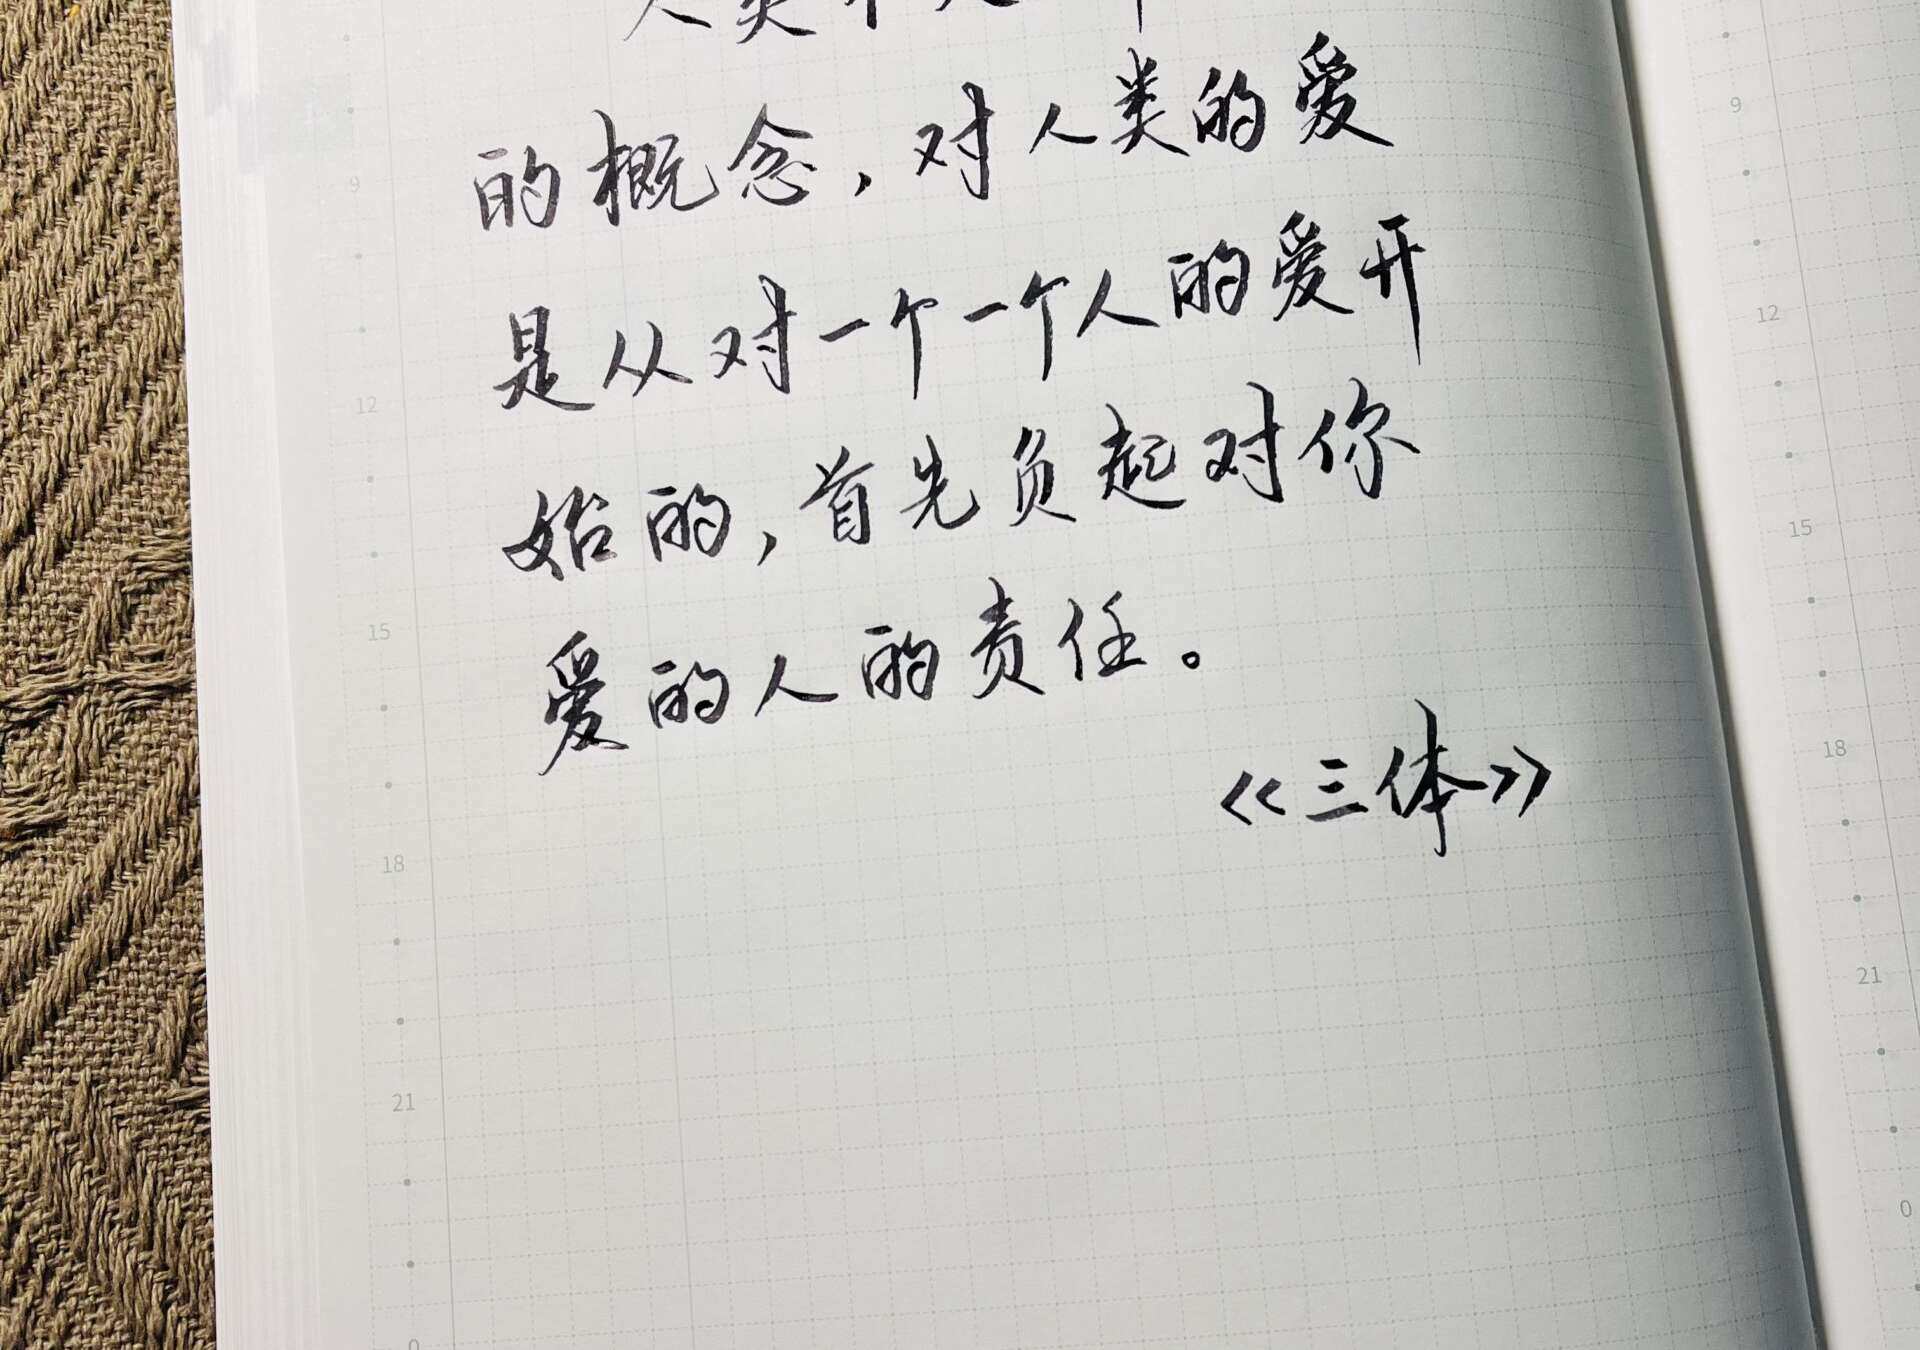 人类
的概念，对人类的爱
是从对一个一个人的爱开
始的，首先负起对你
爱的人的责任。
《三体》
9
12
15
18
21
0
9
12
15
18
21
0